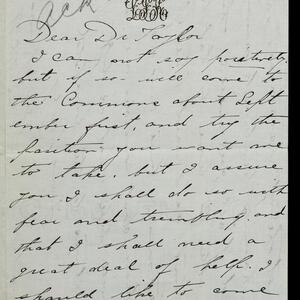 Ack
Dear Dr Taylor
I can not say positively
but if so - will come to
the Commons about Sept
ember first, and try the
position you want me
to take, but I assure
you I shall do so with
fear and trembling, and
that I shall need a
great deal of help. I
should like to come